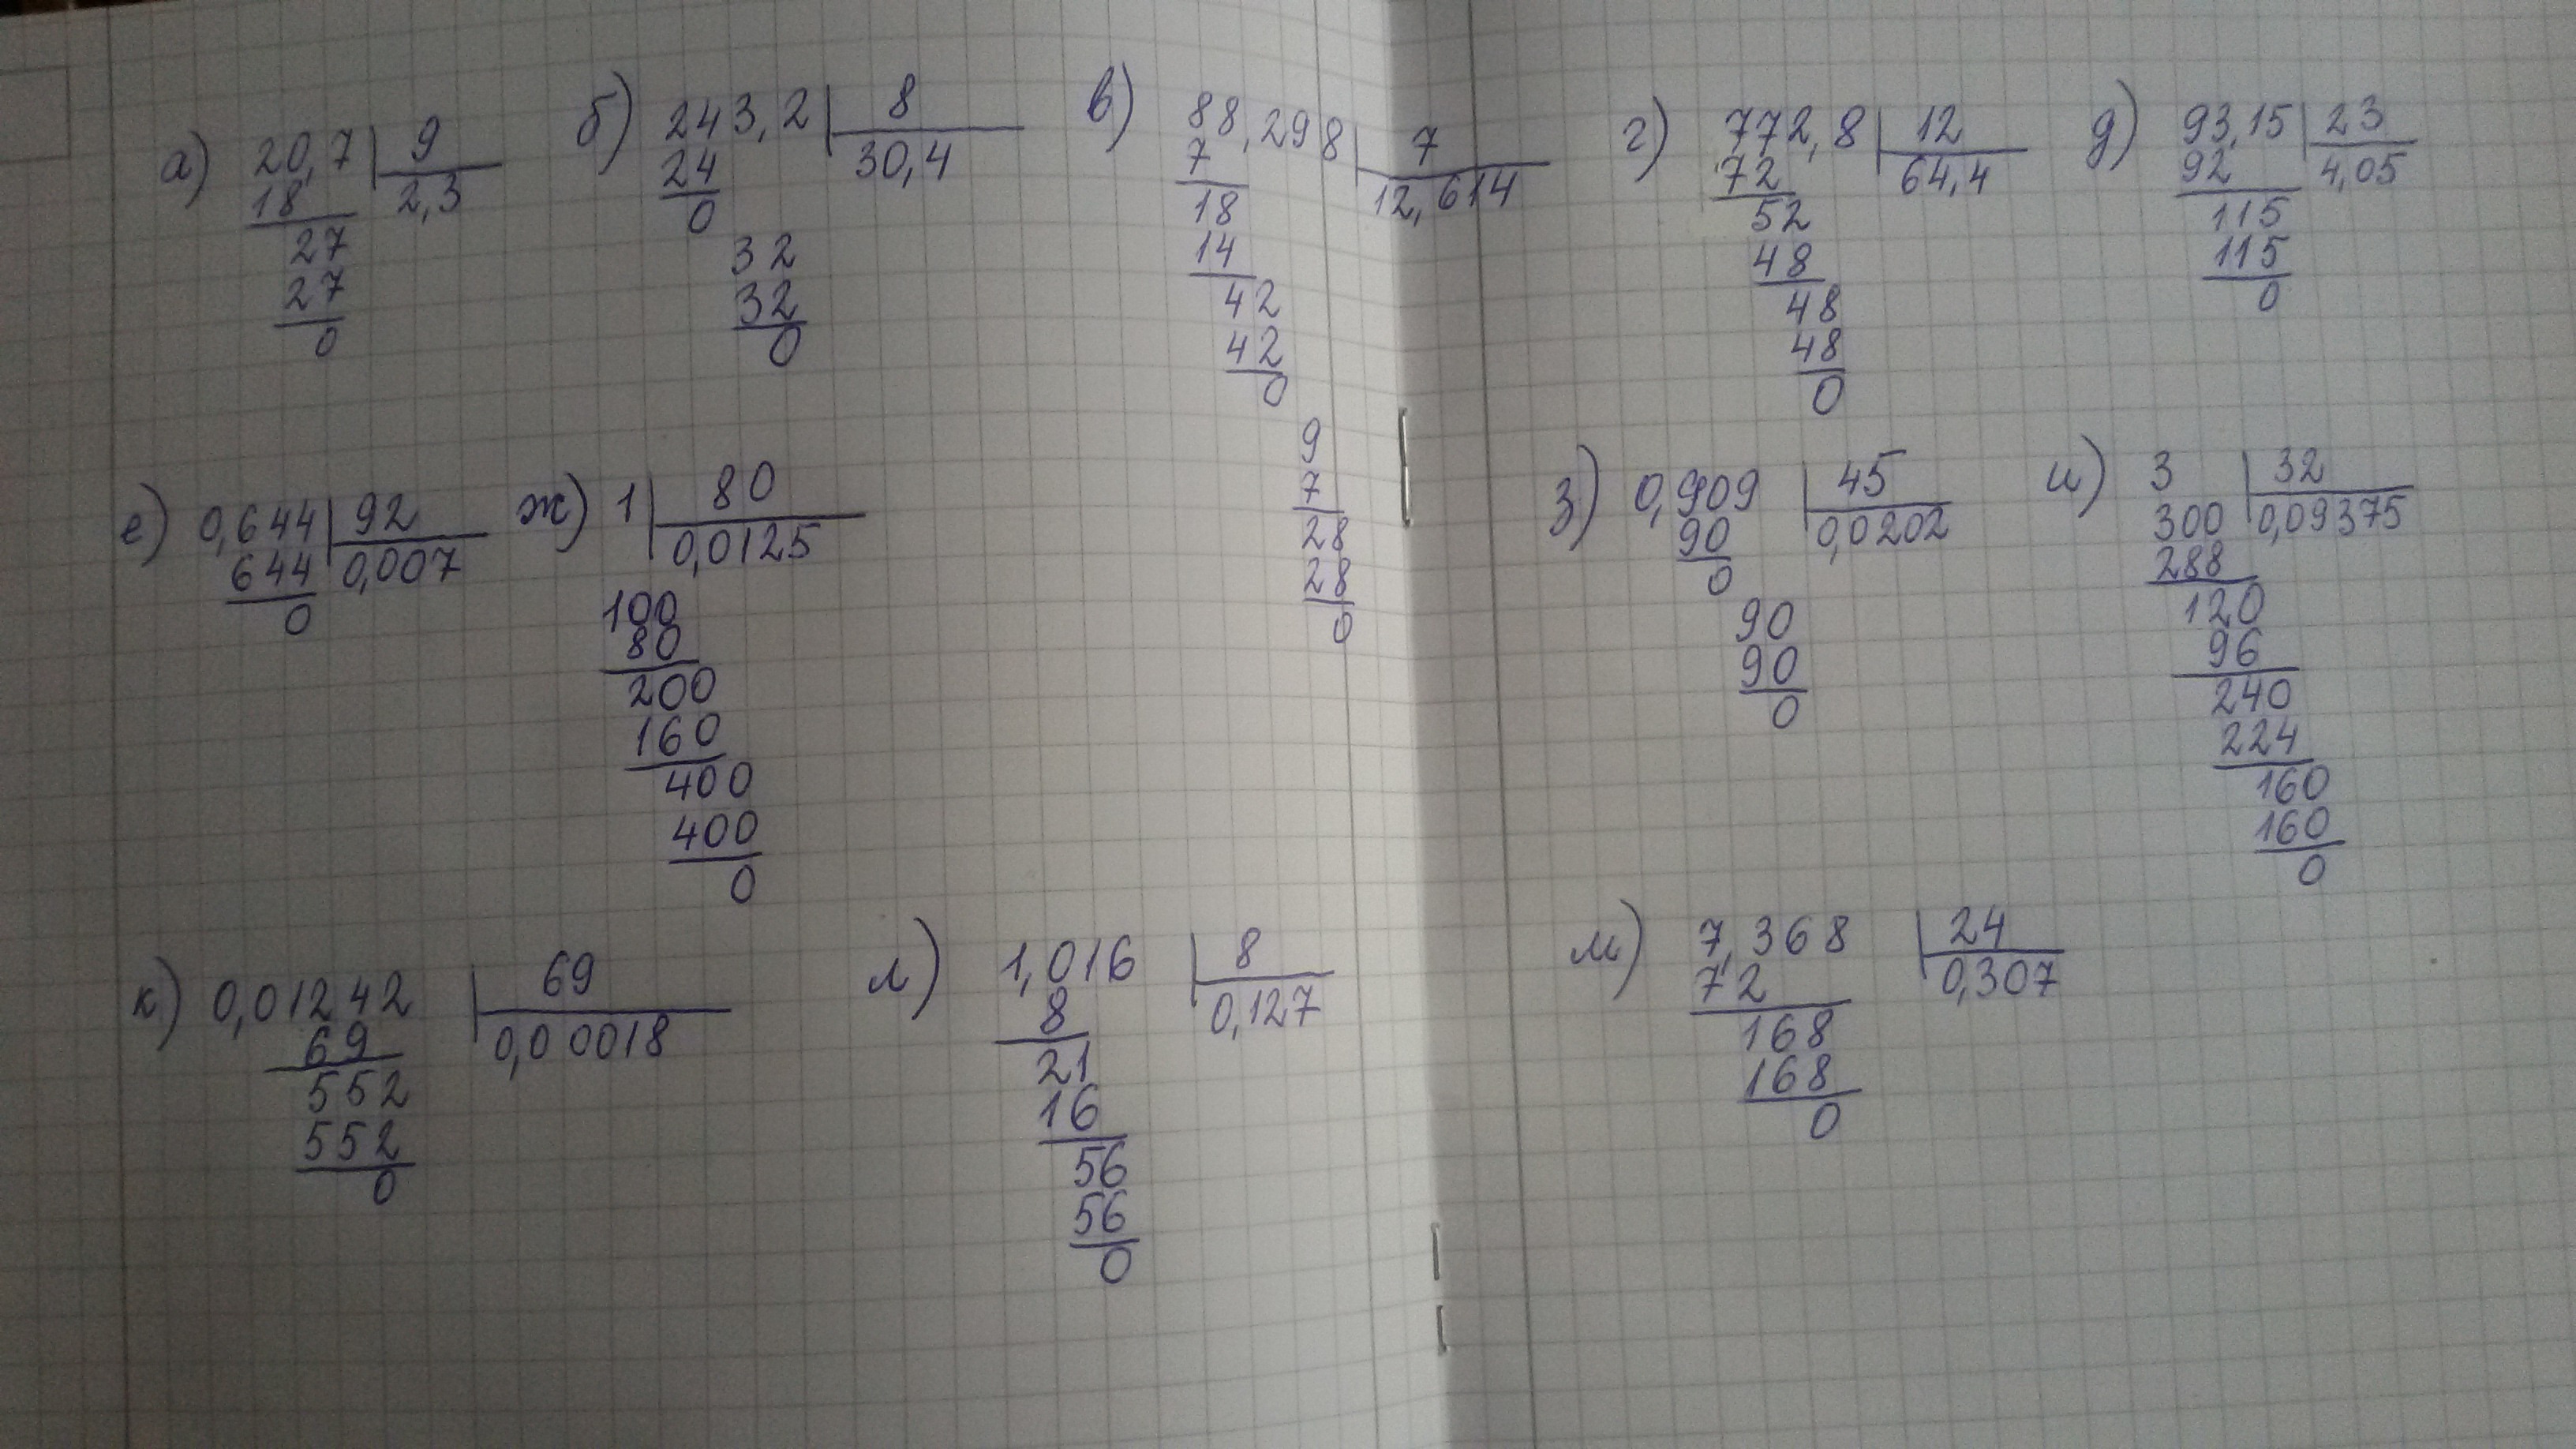 а) 20,7 9
18 2,3
27
27
0
б) 243,2 8
24 30,4
0
32
32
0
в) 88,298 7
7 12,614
18
14
42
42
0
9
7
28
28
0
г) 772,8 12
72 64,4
52
48
48
48
0
д) 93,15 23
92 4,05
115
115
0
е) 0,644 92
644 0,007
0
ж) 1 80
0,0125
100
80
200
160
400
400
0
з) 0,909 45
90 0,0202
0
90
90
0
и) 3 32
300 0,09375
288
120
96
240
224
160
160
0
к) 0,01242 69
69 0,00018
552
552
0
л) 1,016 8
8 0,127
21
16
56
56
0
м) 7,368 24
72 0,307
168
168
0